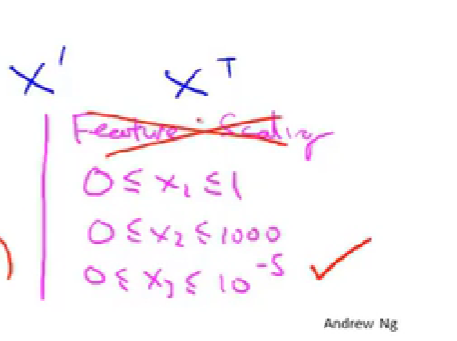 X' X^T
Feature Scaling
0 ≤ x₁ ≤ 1
0 ≤ x₂ ≤ 1000
0 ≤ x₃ ≤ 10⁻⁵ ✓
Andrew Ng